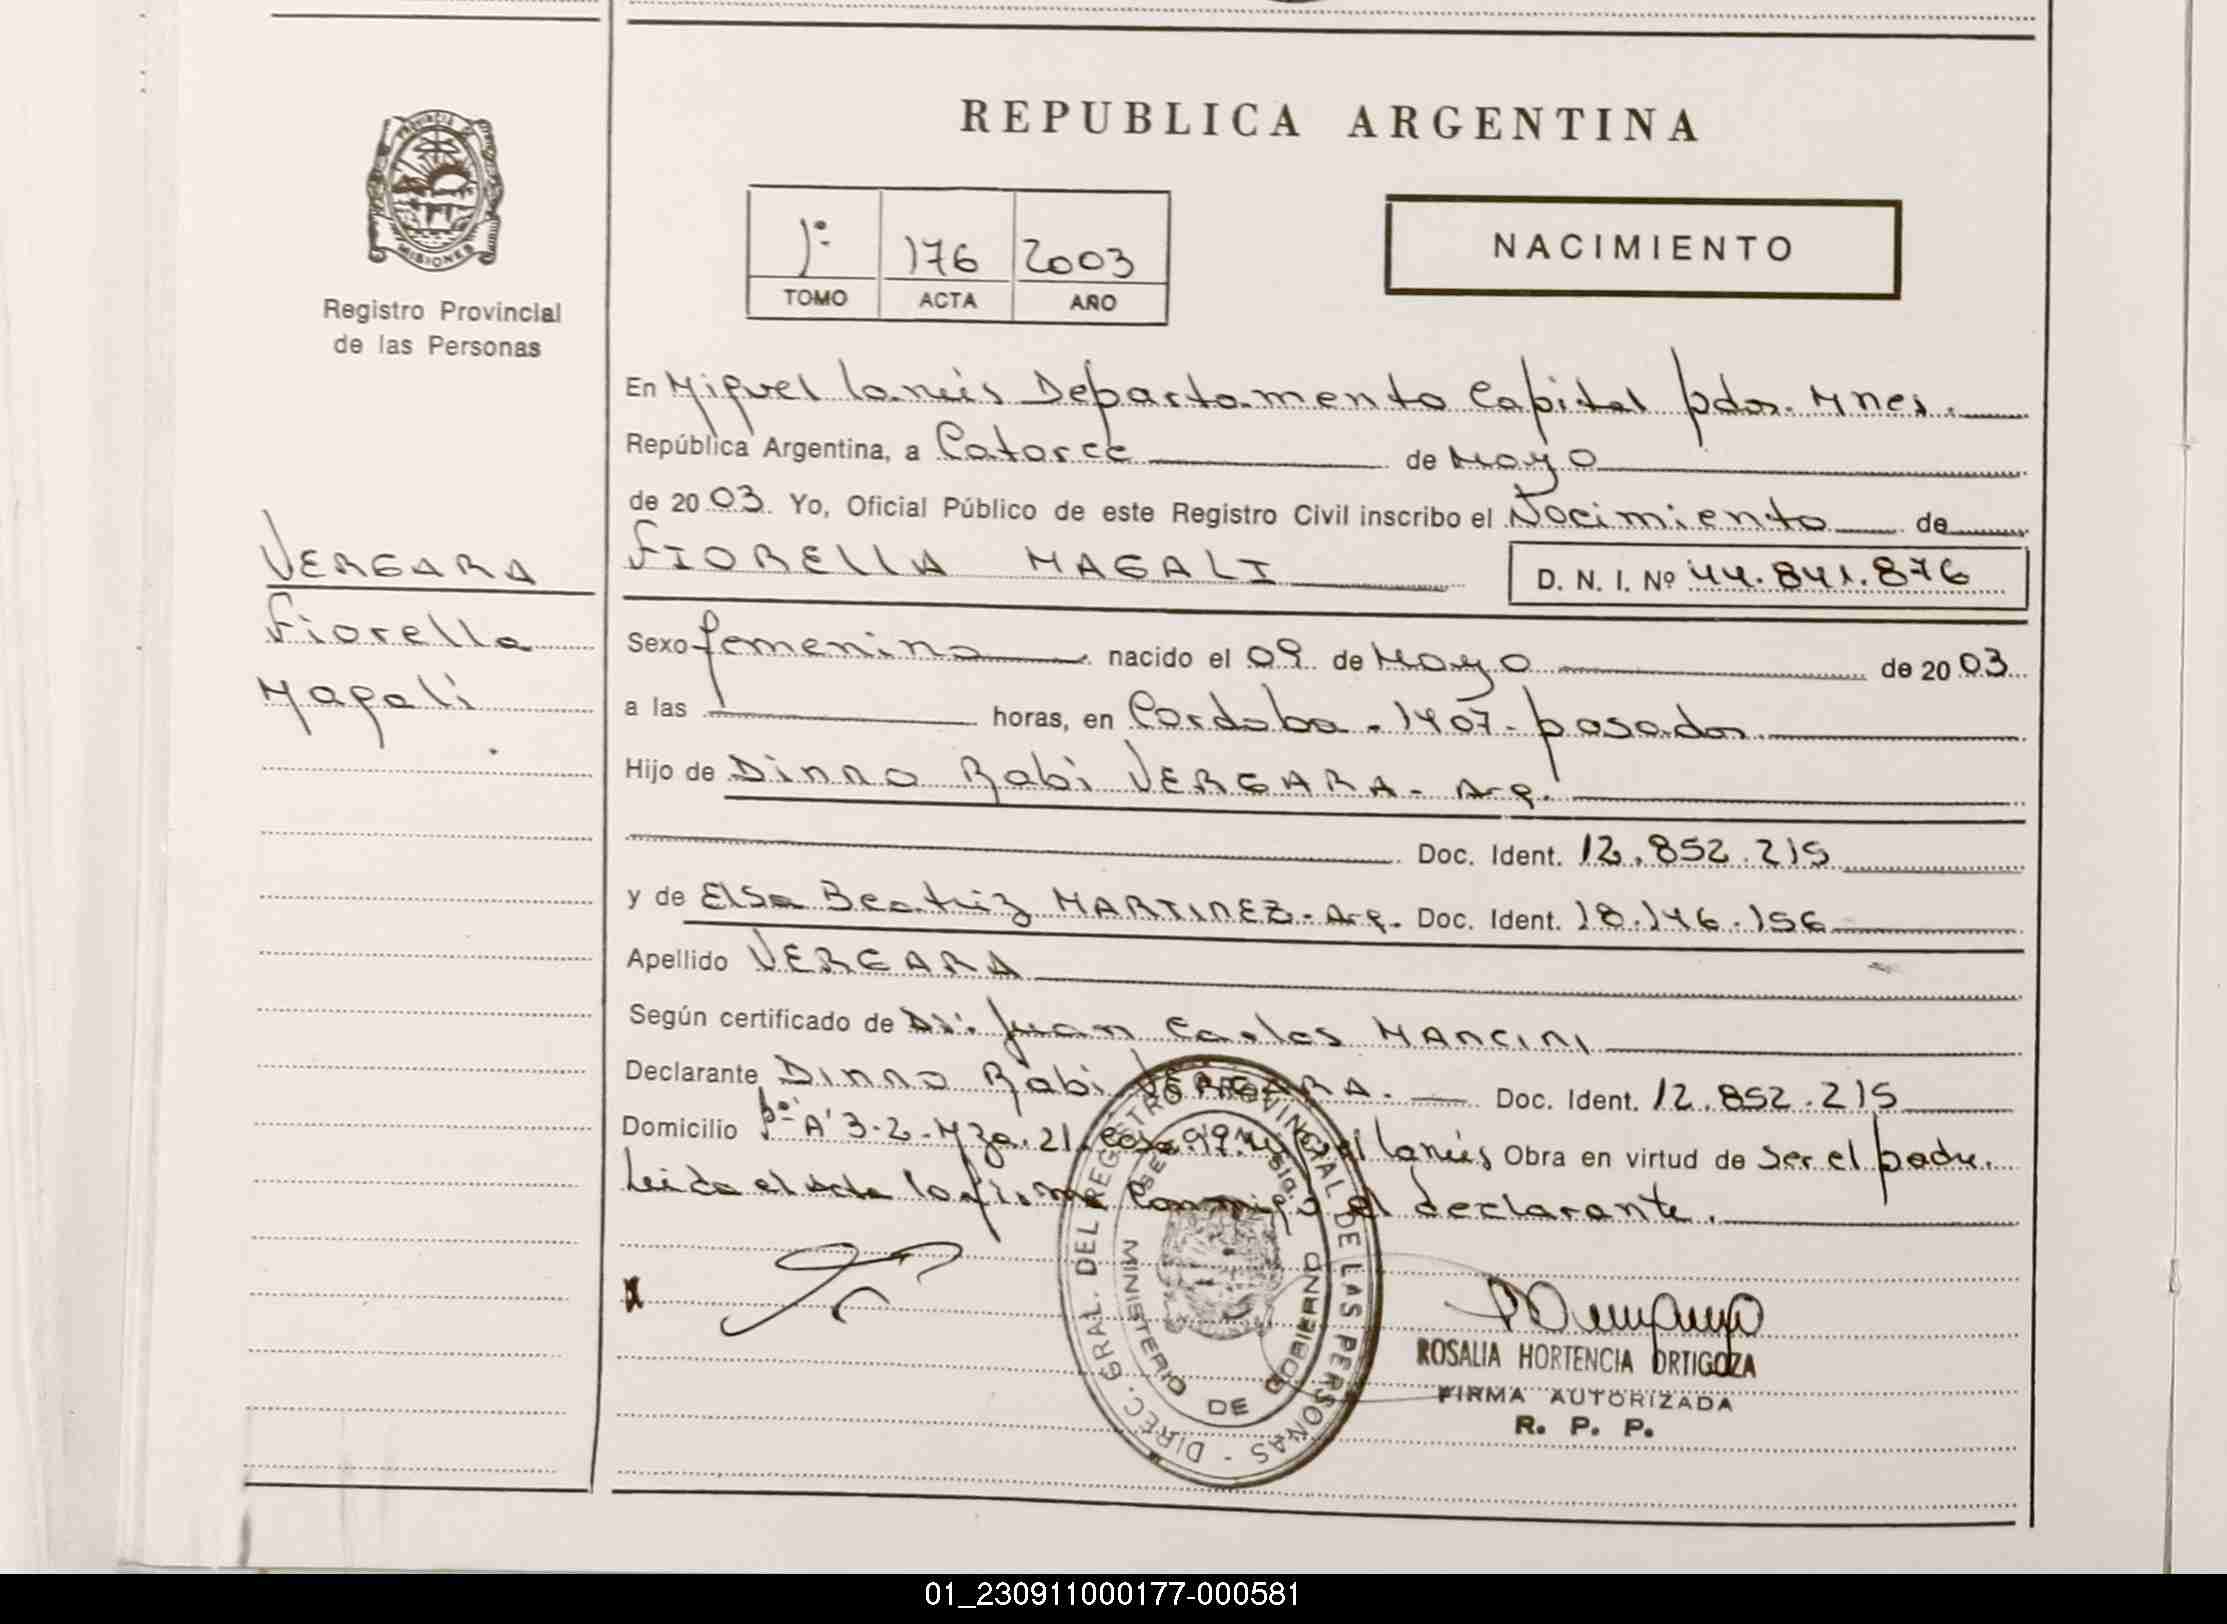 REPUBLICA ARGENTINA
PROVINCIA DE
MISIONES
Registro Provincial
de las Personas
1º 176 2003
TOMO ACTA AÑO
NACIMIENTO
En Miguel Lanús Departamento Capital pdas. Mnes.
República Argentina, a Catorce de Mayo
de 2003. Yo, Oficial Público de este Registro Civil inscribo el Nacimiento de
VERGARA
Fiorella
Magali
FIORELLA MAGALI D. N. I. Nº 44.841.876
Sexo femenino nacido el 09 de Mayo de 2003
a las horas, en Cordoba - 1407 - posadas
Hijo de Dinno Rabi VERGARA - Arg.
Doc. Ident. 12.852.215
y de Elsa Beatriz MARTINEZ - Arg. Doc. Ident. 18.146.156
Apellido VERGARA
Según certificado de Dr. Juan Carlos MANCINI
Declarante Dinno Rabi VERGARA. Doc. Ident. 12.852.215
Domicilio "A" 3-2-Mza. 21. casa 99. Miguel Lanús Obra en virtud de ser el padre.
Leida el acta la firma conmigo el declarante.
DIREC. GRAL. DEL REGISTRO PROVINCIAL DE LAS PERSONAS
MINISTERIO DE GOBIERNO
ROSALIA HORTENCIA ORTIGOZA
FIRMA AUTORIZADA
R. P. P.
01_230911000177-000581